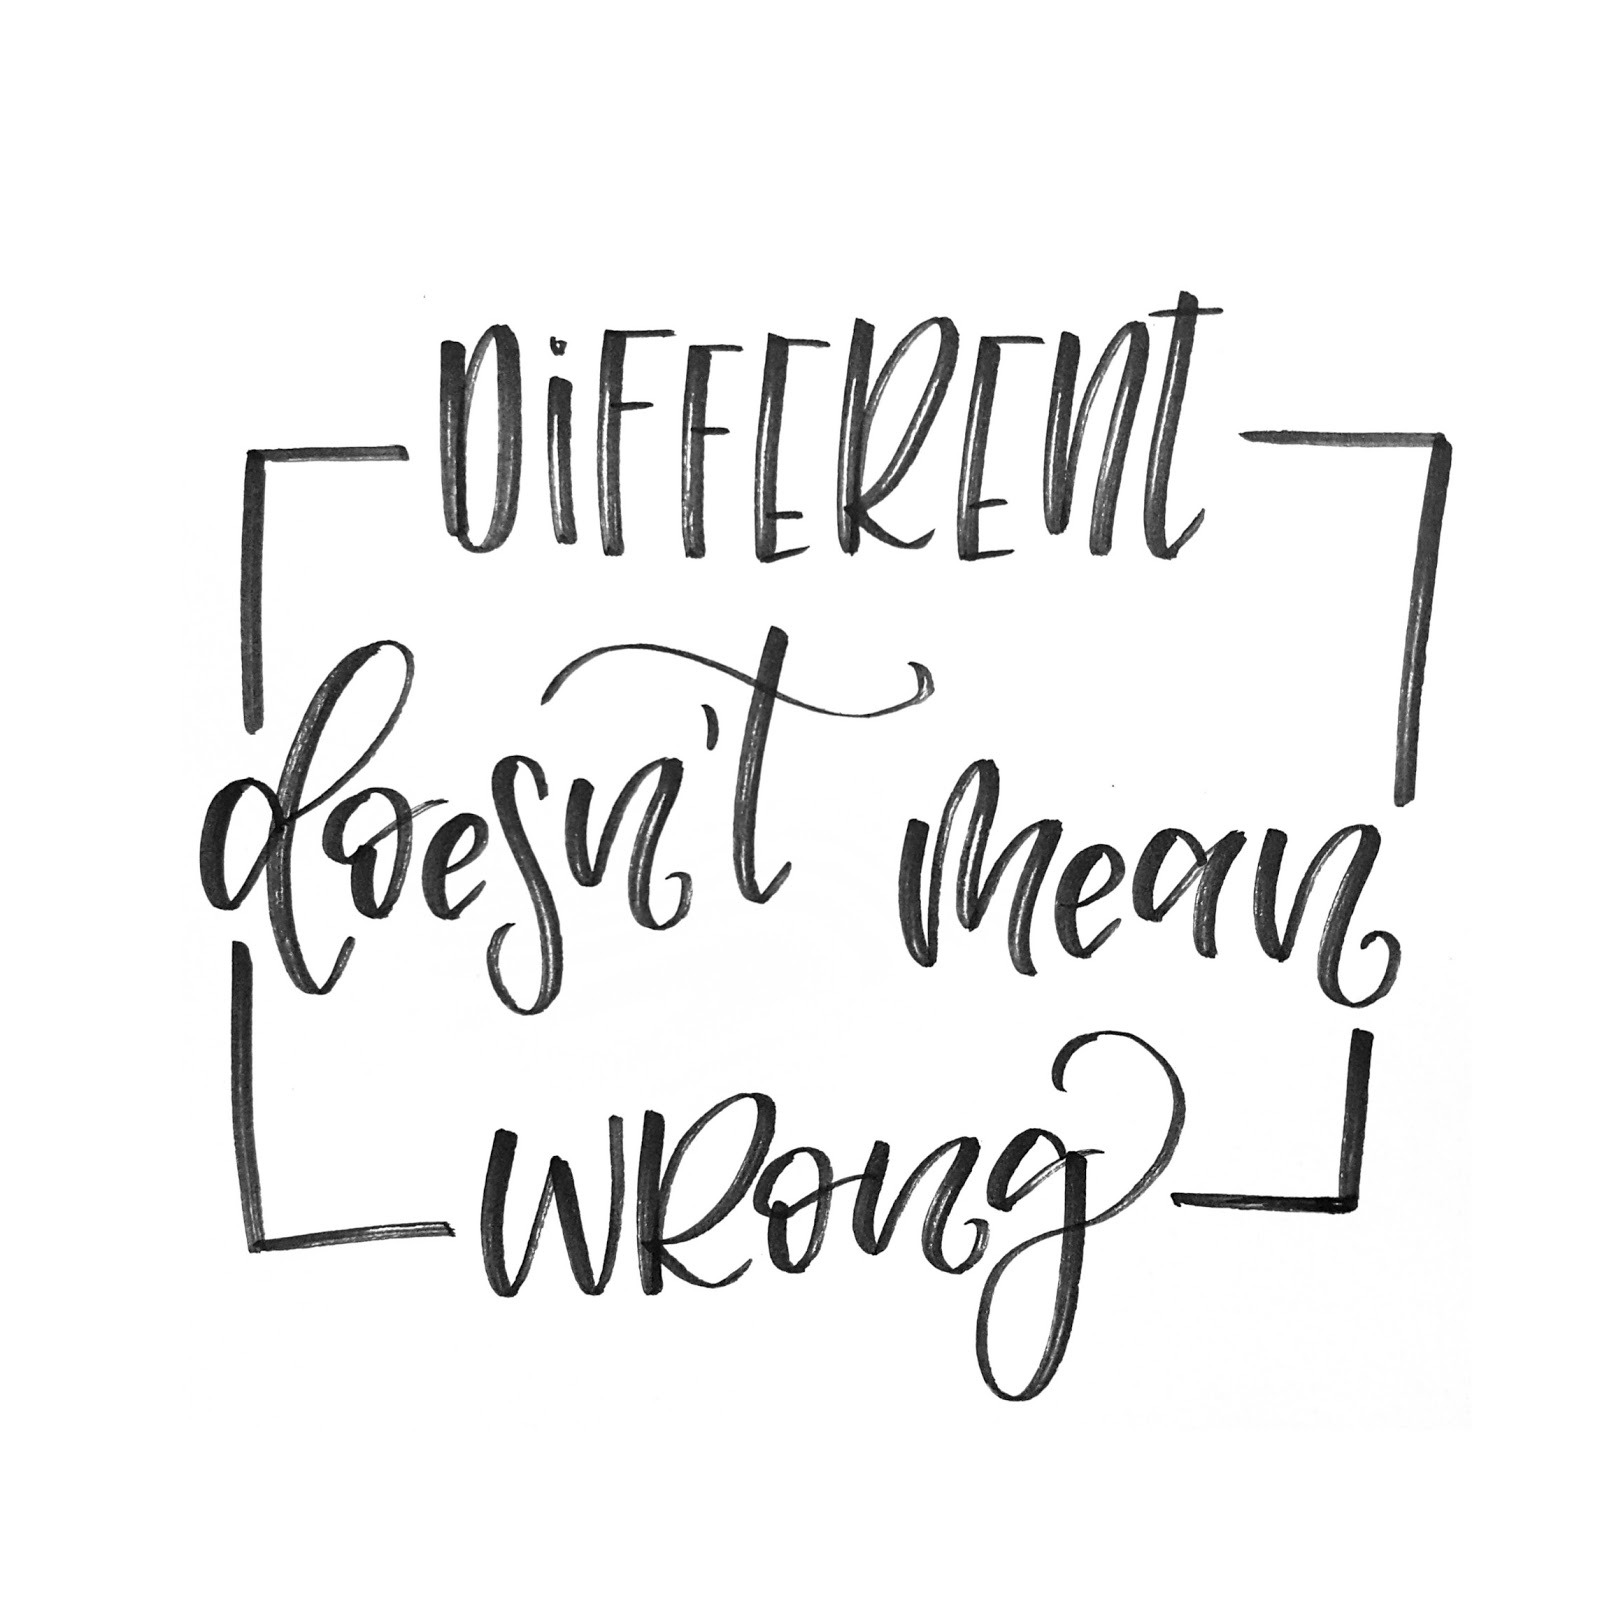 DiFFERENt
doesn't mean
wRong